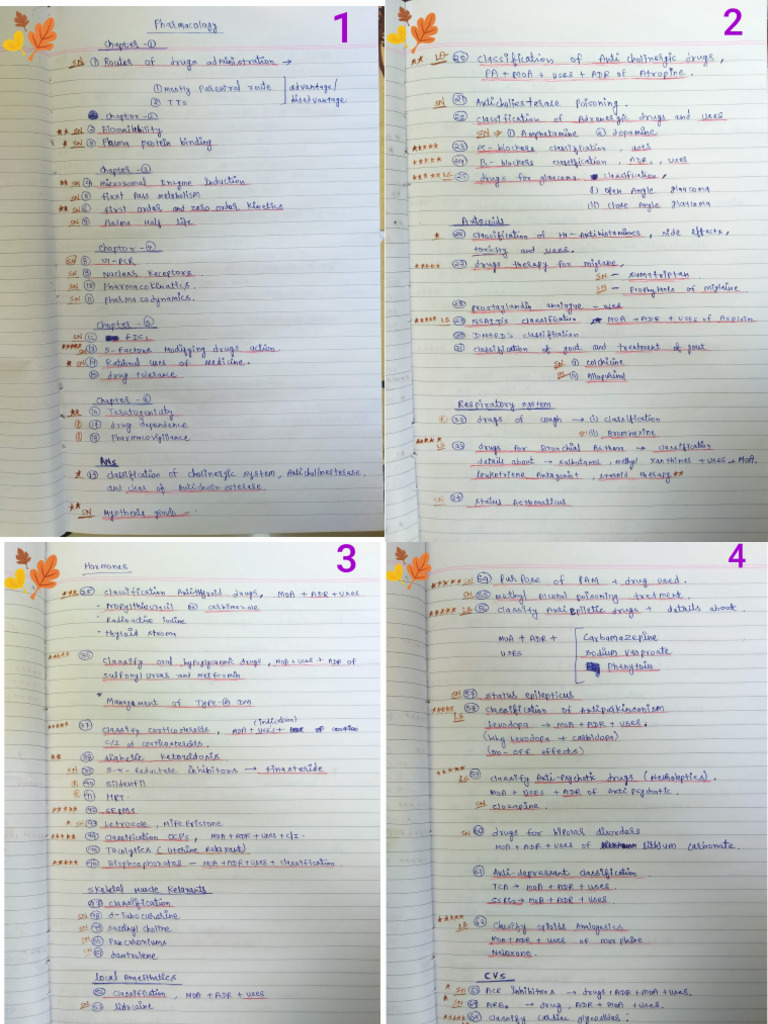 1
Pharmacology
Chapter -①
SN ① Routes of drugs administration →
① mostly Parentral route advantage/
② TTS disadvantage
chaptor-②
** SN ② Bioavailability
* SN ③ Plasma protein binding
Chapter -③
** SN ④ microsomal Enzyme Induction
SN ⑤ first Pass metabolism
** SN ⑥ first order and zero order kinetics
SN ⑦ Plasma Half Life
Chaptor -④
SN ⑧
SN ⑨ Nuclear Receptors
SN ⑩ Pharmacokinetics
SN ⑪ pharmacodynamics.
Chapter -⑤
SN ⑫ FDCs
SN ⑬ 5-Factors Modifying drugs action
* SN ⑭ Rational uses of medicine.
⑮ drug tolerance.
Chapter -⑥
** ⑯ Teratogenicity
⑰ drug dependence
⑱ Pharmacovigilance
ANS
* ⑲ classification of cholinergic system, Anticholinesterase,
and uses of Anticholinesterase.
** SN Mysthenia gravis -
2
** LQ ⑳ Classification of Anti cholinergic drugs,
PA + MOA + uses + ADR of Atropine.
SN ㉑ Anticholiesterase Poisoning.
㉒ classification of Adrenergic drugs and uses
SN → ① Amphetamine ② dopamine
***** ㉓ α- blockers classification, uses
***** ㉔ B- blockers classification, ADR, uses
㉕ drugs for glaucoma classification,
(I) open Angle glucoma
(II) close Angle glaucoma
Autocoids
* ㉖ classification of H1-Antihistamines, side effects,
toxicity and uses.
㉗ drugs therapy for migrane,
SN - sumatriptan
SN - Prophylaxis of migraine
㉘ Prostaglandin analogue - used
***** LQ ㉙ NSAIDs classification MOA +ADR + uses of Aspirin
㉚ DMARD's classification
㉛ classification of gout and treatment of gout
SN (i) colchicine
(ii) Allopurinol
Respiratory system
㉜ drugs of cough → (i) classification
SN (ii) Bromhexine
**** LQ ㉝ drugs for Bronchial Asthma → classification
details about → salbutamol, methyl xanthines + uses + MOA
leukotriene Antagonist, steroid therapy**
SN ㉞ status Asthmaticus
3
Hormones
㉟ classification Antithyroid drugs, MOA + ADR + uses
• Propylthiouracil carbimazole
• Radioactive Iodine
• thyroid strom
***** ㊱ Classify oral hypoglycemic drugs, MOA + uses + ADR of
sulfonyl ureas and metformin
* Management of Type-② DM
(indication)
㊲ classify corticosteroids, MOA + uses +
C/I of corticosteroids.
** ㊳ diabetic ketoacidosis
SN ㊴ 5-α- Reductase inhibitors → finasteride
㊵ Sildenfil
㊶ HRT
***** ㊷ SERMs
* SN ㊸ Letrozole, Mifepristone
***** ㊹ Classification OCPs, MOA + ADR + uses + C/I.
㊺ Tocolytics (uterine Relaxant)
***** ㊻ Bisphosphonates - MOA + ADR + uses + classification.
Skeletal muscle Relaxants
㊼ classification
SN ㊽ d-Tubocurarine
SN ㊾ succinyl choline
SN ㊿
SN 51 dantrolene
local Anaesthetics
52 Classification, MOA + ADR + uses
SN 53 lidocaine
4
SN 54 Purpose of PAM + drug used.
SN 55 Methyl alcohol poisoning treatment.
LQ 56 Classify Antiepileptic drugs + details about.
MOA + ADR + Carbamazepine
uses sodium Valproate
Phenytoin
SN 57 status epilepticus
LQ 58 classification of Antiparkinsonism
levodopa → MOA + ADR + uses,
(Why levodopa + carbidopa)
(on- off effects)
LQ 59 classify Anti-psychotic drugs (Neuroleptics).
MOA + uses + ADR of Antipsychotic.
SN clozapine.
SN 60 drugs for bipolar disorders
MOA + ADR + uses of lithium carbonate.
61 Anti-depressant classification
TCA → MOA + ADR + uses.
SSRIs → MOA + ADR + uses.
***** LQ 62 Classify opioids Analogesics
MOA + ADR + uses of morphine
Naloxone.
CVS
* SN 63 ACE Inhibitors → drugs + ADR + MOA + uses.
* SN 64 ARBs → drug, ADR + MOA + uses.
65 Classify cardiac glycosides: